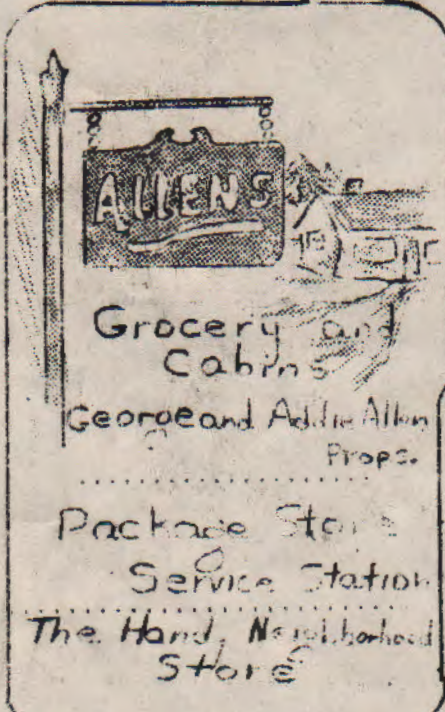 ALLENS
Grocery and
Cabins
George and Addie Allen
Props.
Package Store
Service Station
The Handy Neighborhood
Store